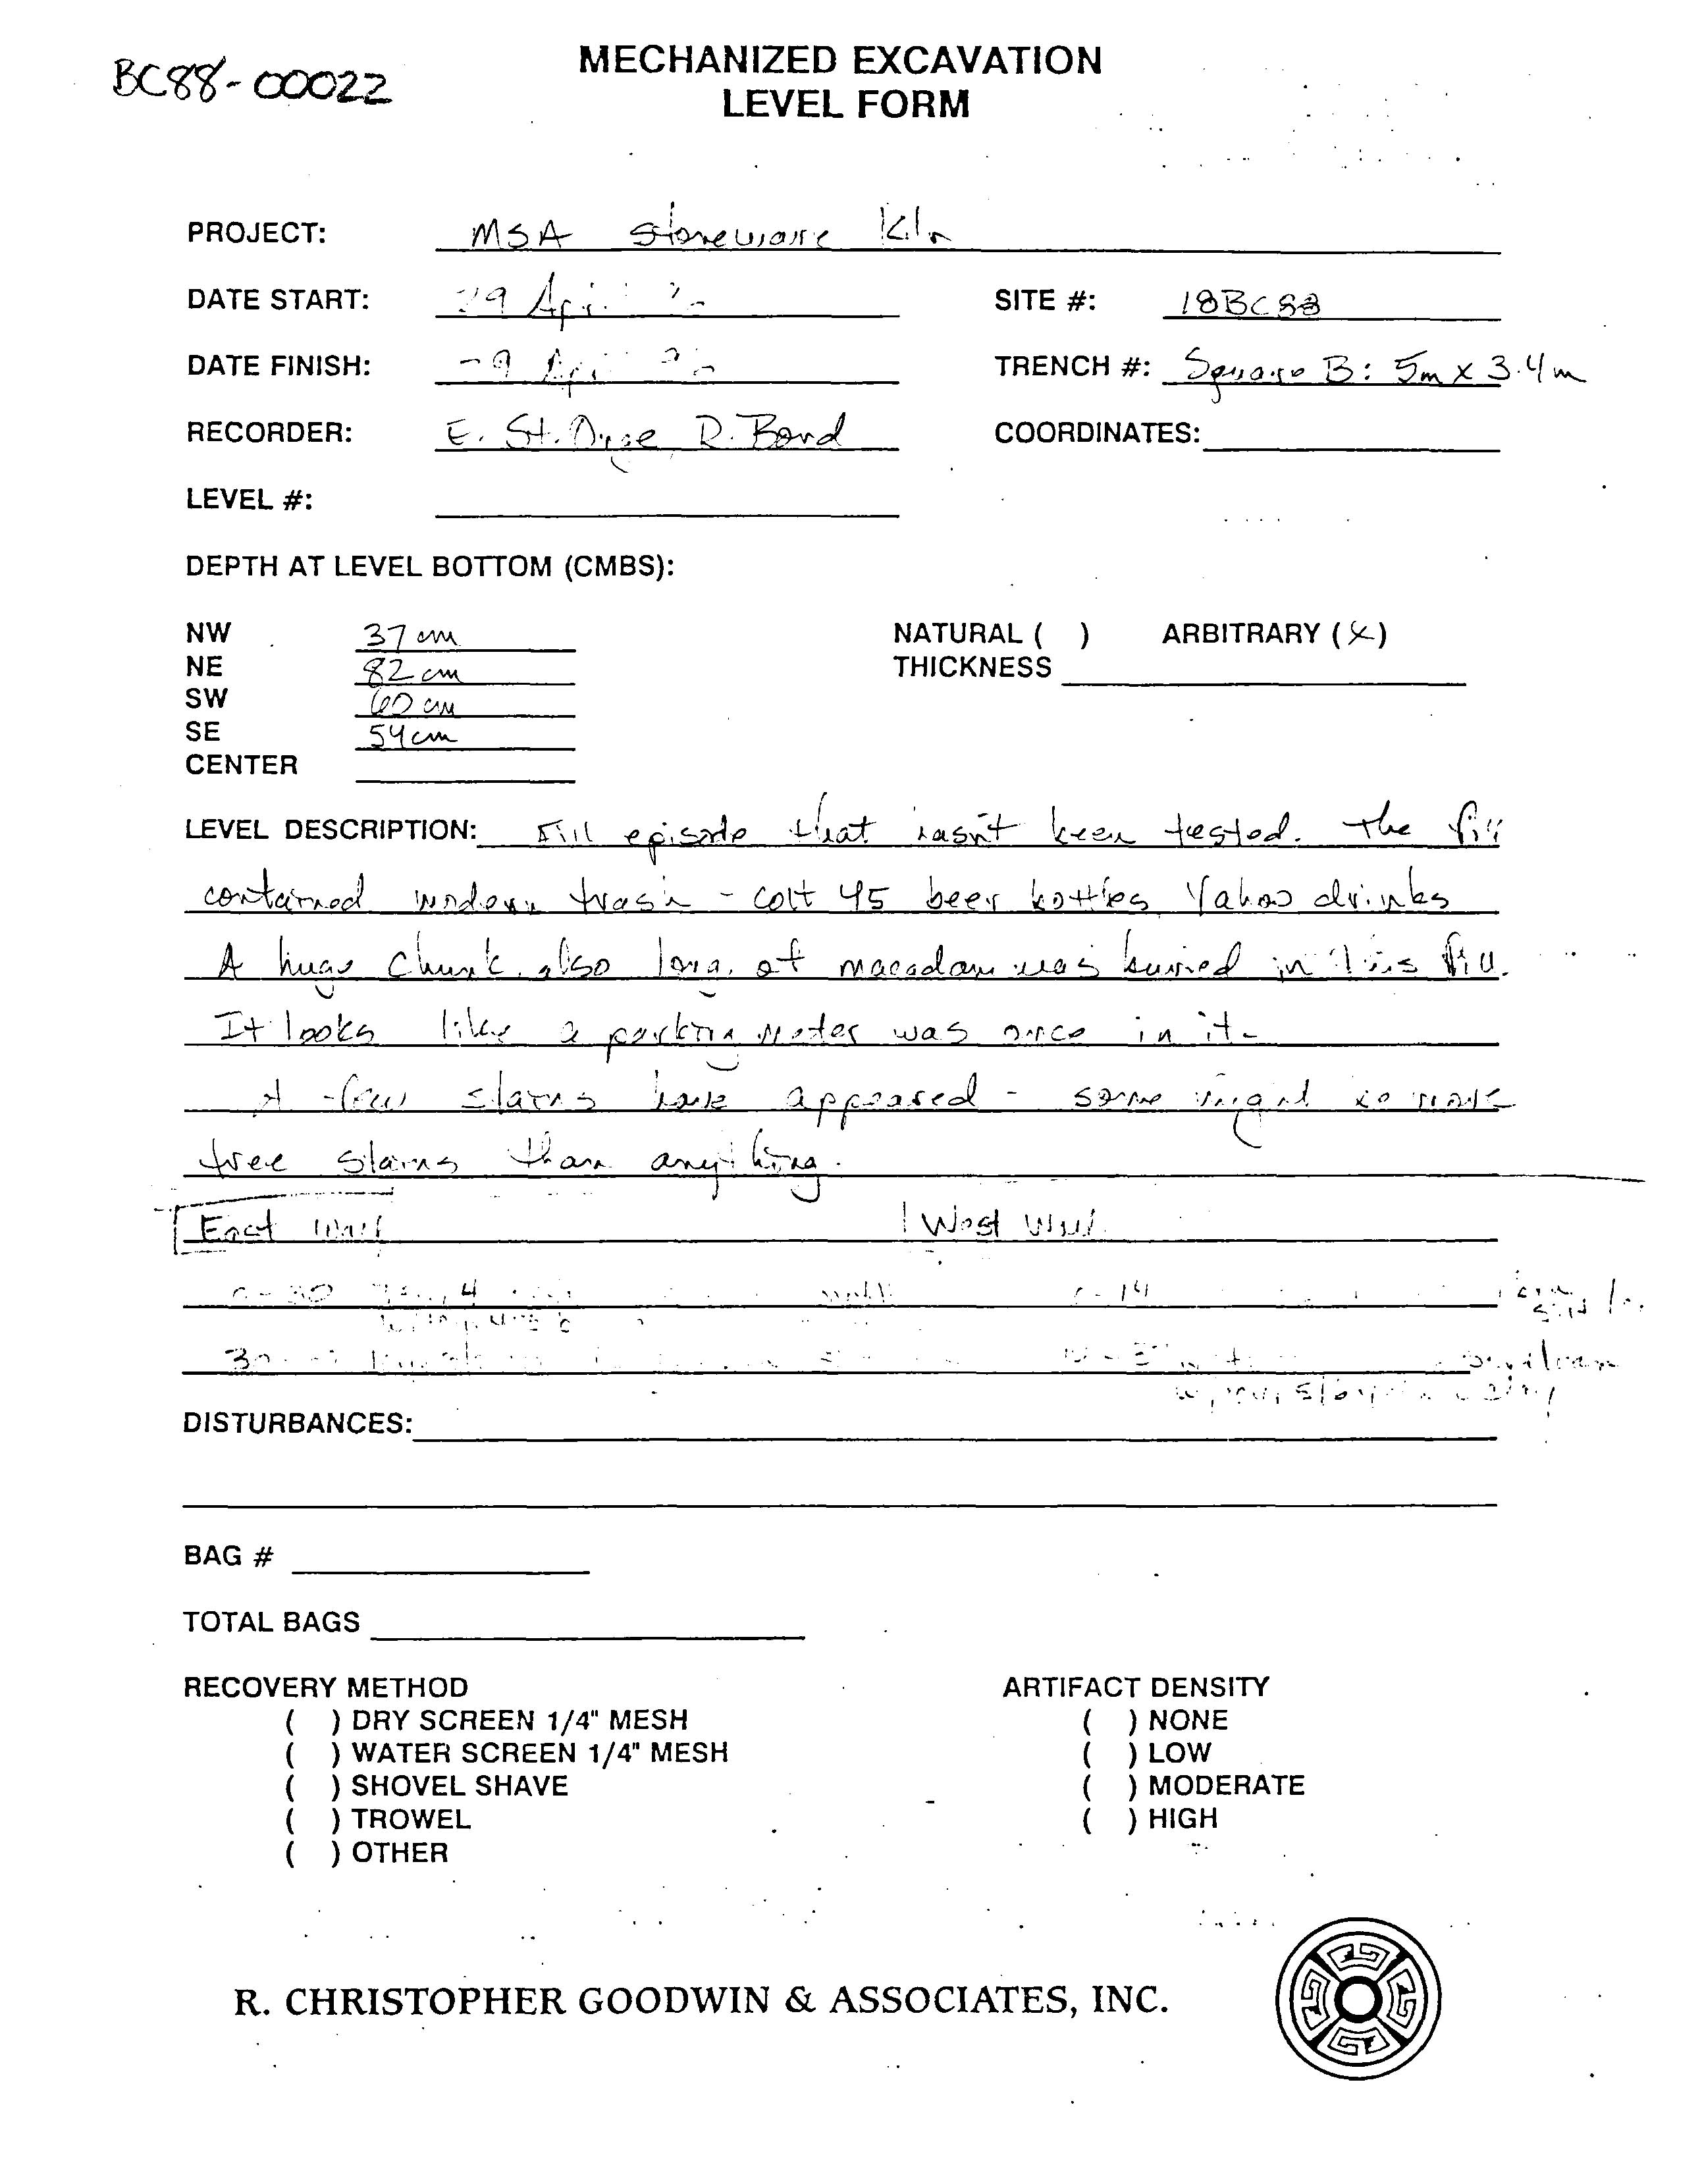 BC88-00022
MECHANIZED EXCAVATION
LEVEL FORM
PROJECT: MSA Stoneware Kiln
DATE START: 29 April
SITE #: 18BC88
DATE FINISH: 29 April
TRENCH #: Square B: 5m x 3.4m
RECORDER: E. St. R. Bond
COORDINATES:
LEVEL #:
DEPTH AT LEVEL BOTTOM (CMBS):
NW 37 cm
NATURAL ( ) ARBITRARY (X)
NE 82 cm
THICKNESS
SW 60 cm
SE 54 cm
CENTER
LEVEL DESCRIPTION: Fill episode that hasn't been tested. The fill
contained modern trash - colt 45 beer bottles, Yahoo drinks
A huge chunk, also long, of macadam was buried in this fill.
It looks like a parking meter was once in it.
A few stains have appeared - some might be more
tree stains than anything.
East Wall
West Wall
0-30
0-14
30-
DISTURBANCES:
BAG #
TOTAL BAGS
RECOVERY METHOD
( ) DRY SCREEN 1/4" MESH
( ) WATER SCREEN 1/4" MESH
( ) SHOVEL SHAVE
( ) TROWEL
( ) OTHER
ARTIFACT DENSITY
( ) NONE
( ) LOW
( ) MODERATE
( ) HIGH
R. CHRISTOPHER GOODWIN & ASSOCIATES, INC.